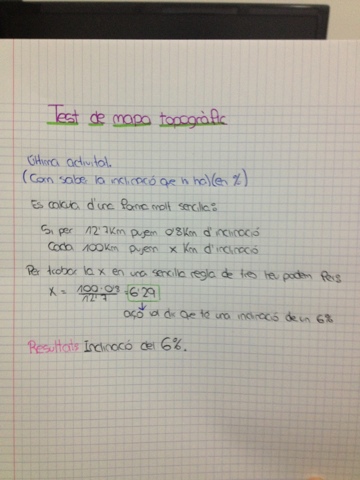 Test de mapa topogràfic
Última activitat.
(Com saber la inclinació que hi ha)(en %)
Es calcula d'una forma molt sencilla:
Si per 12'7Km pujem 0'8Km d'inclinació
Cada 100Km pujem x Km d'inclinació
Per trobar la x en una sencilla regla de tres
X = 100·0'8 / 12'7 = 6'29
açò vol dir que té una inclinació de un 6%
Resultats Inclinació del 6%.